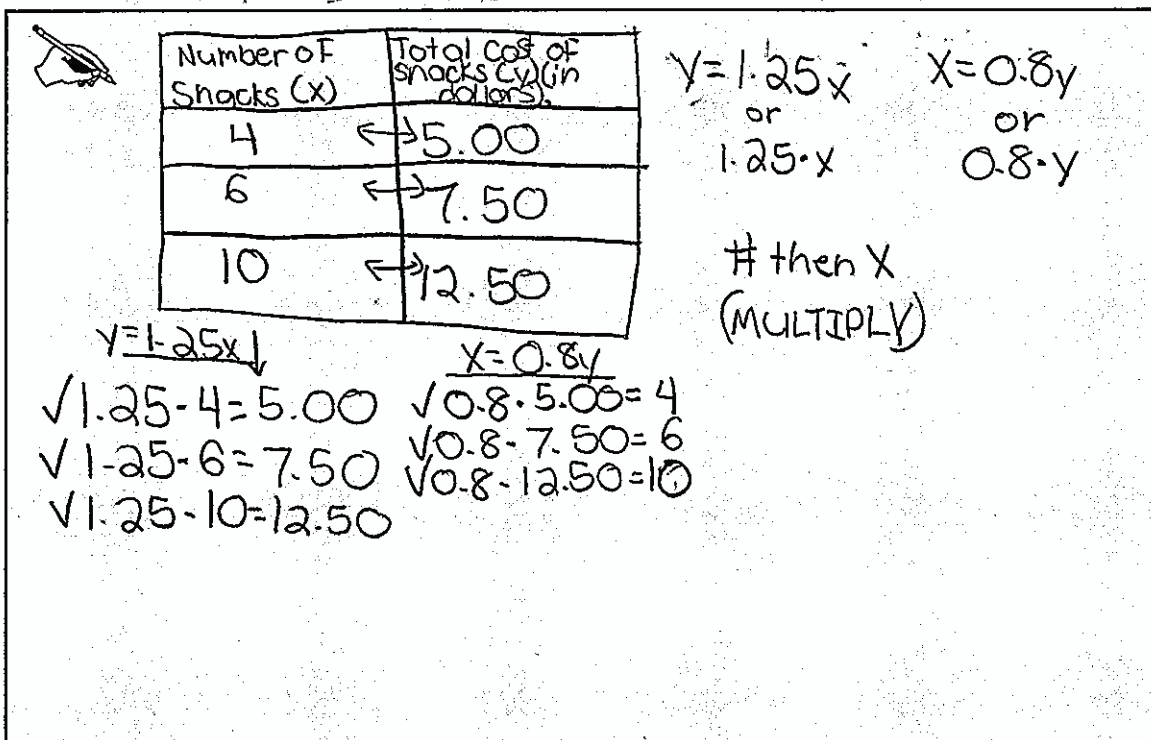 Number of
Snacks (x)
Total Cost of
snacks (y) (in
dollars).
4 ↔ 5.00
6 ↔ 7.50
10 ↔ 12.50
y=1.25x
or
1.25·x
x=0.8y
or
0.8·y
# then X
(MULTIPLY)
y=1.25x↓
√1.25·4=5.00
√1.25·6=7.50
√1.25·10=12.50
x=0.8y
√0.8·5.00=4
√0.8·7.50=6
√0.8·12.50=10